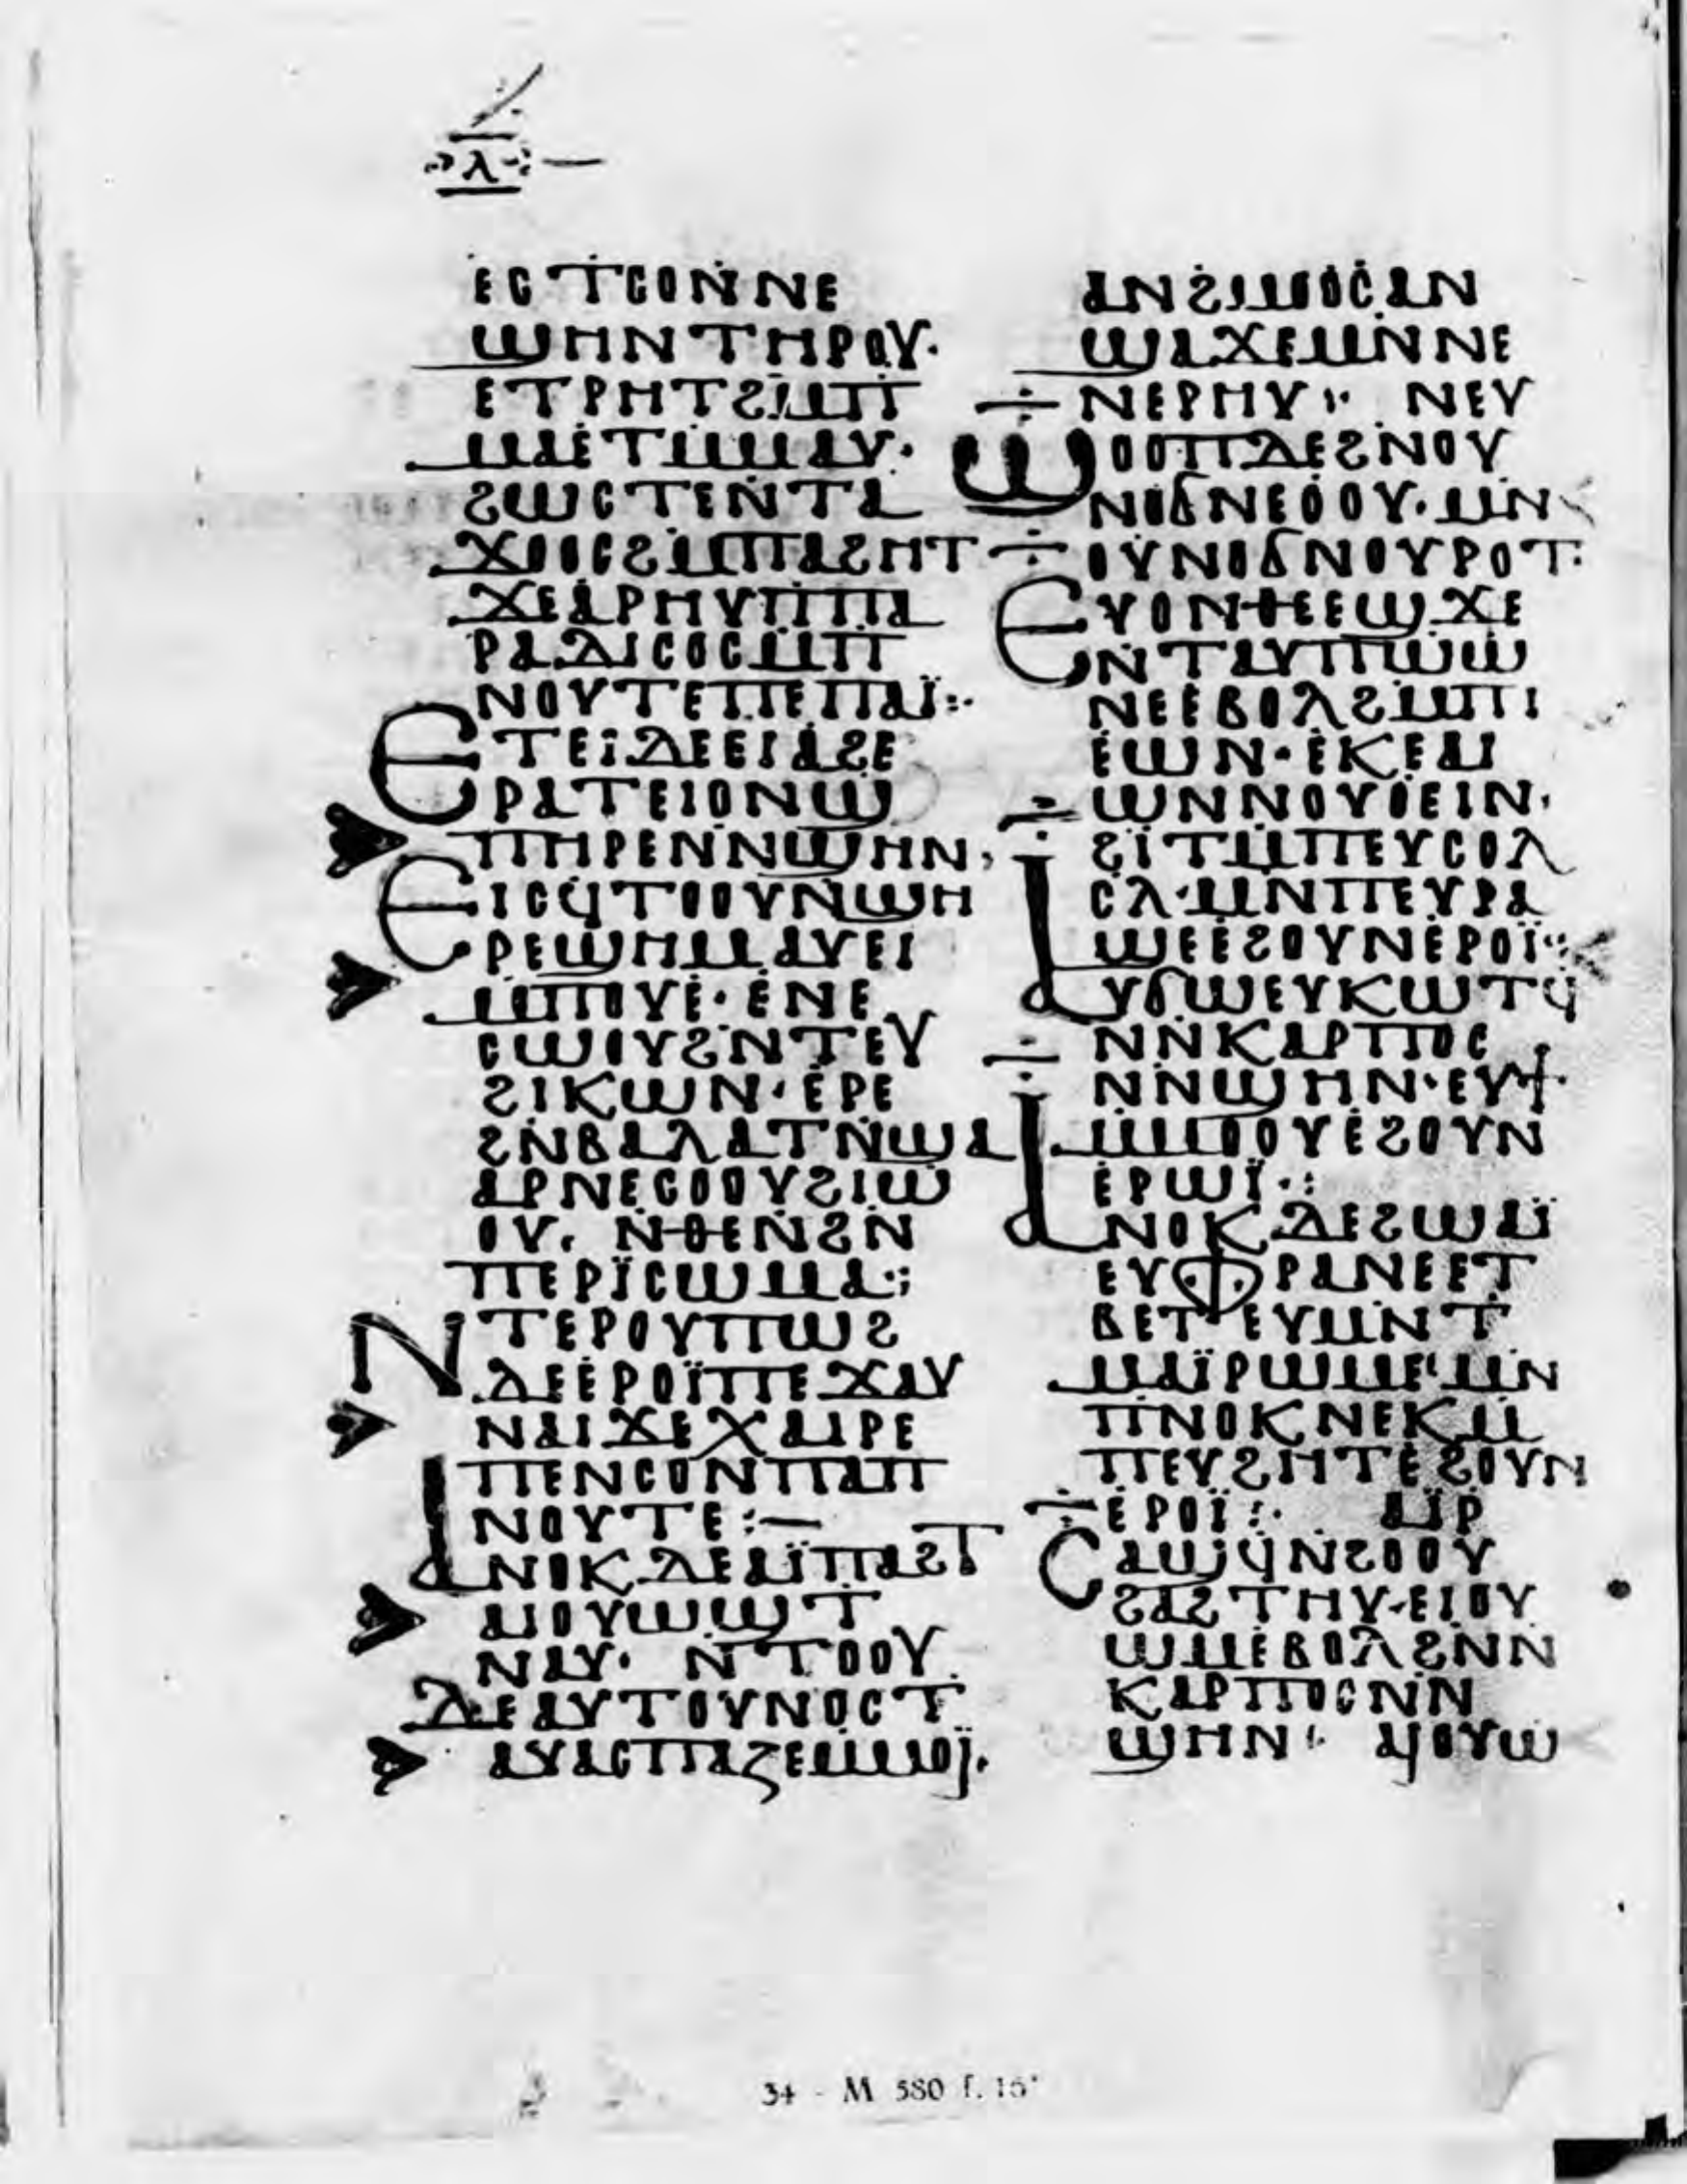 ⲗ
ⲉⲥⲧⲥⲟⲛⲛⲉ
ϣⲏⲛⲧⲏⲣⲟⲩ·
ⲉⲧⲣⲏⲧϩⲙⲡ
ⲙⲁⲉⲧⲙⲙⲁⲩ·
ϩⲱⲥⲧⲉⲛⲧⲁ
ϫⲟⲟⲥϩⲙⲡⲁϩⲏⲧ
ϫⲉⲁⲣⲏⲩⲡⲡⲁ
ⲣⲁⲇⲓⲥⲟⲥⲙⲡ
ⲛⲟⲩⲧⲉⲡⲉⲡⲁⲓ̈:·
ⲉⲧⲉⲓ̈ⲇⲉⲉⲓⲁϩⲉ
ⲣⲁⲧⲉⲓⲟⲛϣ
ⲡⲏⲣⲉⲛⲛϣⲏⲛ,
ⲉⲓⲥϥⲧⲟⲟⲩⲛϣⲏ
ⲣⲉϣⲏⲙ ⲁⲩⲉⲓ
ⲙⲡⲟⲩⲉ·ⲉⲛⲉ
ⲥⲱⲟⲩϩⲛⲧⲉⲩ
ϩⲓⲕⲱⲛ·ⲉⲣⲉ
ϩⲛⲃⲁⲗⲁⲧⲛϣⲁ
ⲁⲣⲛⲉⲥⲟⲟⲩϩⲓⲱ
ⲟⲩ· ⲛⲑⲉⲛϩⲛ
ⲡⲉⲣⲓ̈ⲥⲱⲙⲁ·:
ⲛⲧⲉⲣⲟⲩⲡⲱϩ
ⲇⲉⲉⲣⲟⲓ̈ⲡⲉϫⲁⲩ
ⲛⲁⲓϫⲉⲭⲁⲓⲣⲉ
ⲡⲉⲛⲥⲟⲛⲡⲁⲡ
ⲛⲟⲩⲧⲉ:—
ⲁⲛⲟⲕⲇⲉⲁⲓ̈ⲡⲁϩⲧ
ⲁⲓⲟⲩⲱϣⲧ
ⲛⲁⲩ· ⲛⲧⲟⲟⲩ
ⲇⲉⲁⲩⲧⲟⲩⲛⲟⲥⲧ
ⲁⲩⲁⲥⲡⲁⲍⲉⲙⲙⲟⲓ̈·
ⲁⲛϩⲙⲟⲟⲥⲁⲛ
ϣⲁϫⲉⲙⲛⲛⲉ
ⲛⲉⲣⲏⲩ:· ⲛⲉⲩ
ϣⲟⲟⲡⲇⲉϩⲛⲟⲩ
ⲛⲟϭⲛⲉⲟⲟⲩ·ⲙⲛ
ⲟⲩⲛⲟϭⲛⲟⲩⲣⲟⲧ:
ⲉⲩⲟⲛⲑⲉⲉϣϫⲉ
ⲛⲧⲁⲩⲡⲱⲱ
ⲛⲉⲉⲃⲟⲗϩⲙⲡⲓ
ⲉⲱⲛ·ⲉⲕⲉⲁⲓ
ⲱⲛⲛⲟⲩⲟⲉⲓⲛ·
ϩⲓⲧⲙⲡⲉⲩⲥⲟⲗ
ⲥⲗ·ⲙⲛⲡⲉⲩⲣⲁ
ϣⲉⲉϩⲟⲩⲛⲉⲣⲟⲓ̈:·
ⲁⲩϭⲱⲉⲩⲕⲱⲧϥ
ⲛⲛⲕⲁⲣⲡⲟⲥ
ⲛⲛϣⲏⲛ·ⲉⲩϯ
ⲙⲙⲟⲟⲩⲉϩⲟⲩⲛ
ⲉⲣⲱⲓ̈·:
ⲁⲛⲟⲕⲇⲉϩⲱⲁⲓ̈
ⲉⲩⲫⲣⲁⲛⲉⲉⲧ
ⲃⲉⲧⲉⲩⲙⲛⲧ
ⲙⲁⲓ̈ⲣⲱⲙⲉ·ⲙⲛ
ⲡⲛⲟⲕⲛⲉⲕⲙ
ⲡⲉⲩϩⲏⲧⲉϩⲟⲩⲛ
ⲉⲣⲟⲓ̈:· ⲁⲓ̈ⲣ
ⲥⲁϣϥⲛϩⲟⲟⲩ
ϩⲁϩⲧⲏⲩ·ⲉⲓⲟⲩ
ⲱⲙⲉⲃⲟⲗϩⲛⲛ
ⲕⲁⲣⲡⲟⲥⲛⲛ
ϣⲏⲛ:· ⲁⲓⲟⲩⲱ
34 - M 580 f. 15ᵛ